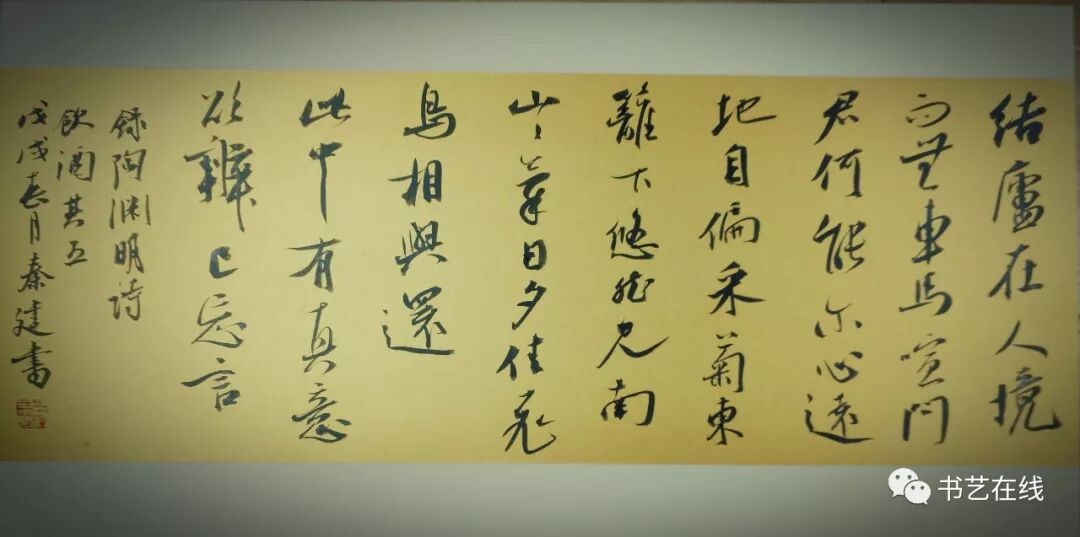 結廬在人境
而無車馬喧问
君何能尔心遠
地自偏采菊東
籬下悠然見南
山〻氣日夕佳飛
鳥相與還
此中有真意
欲辨已忘言
録陶渊明诗
飲酒其五
戊戌春月秦建書
书艺在线